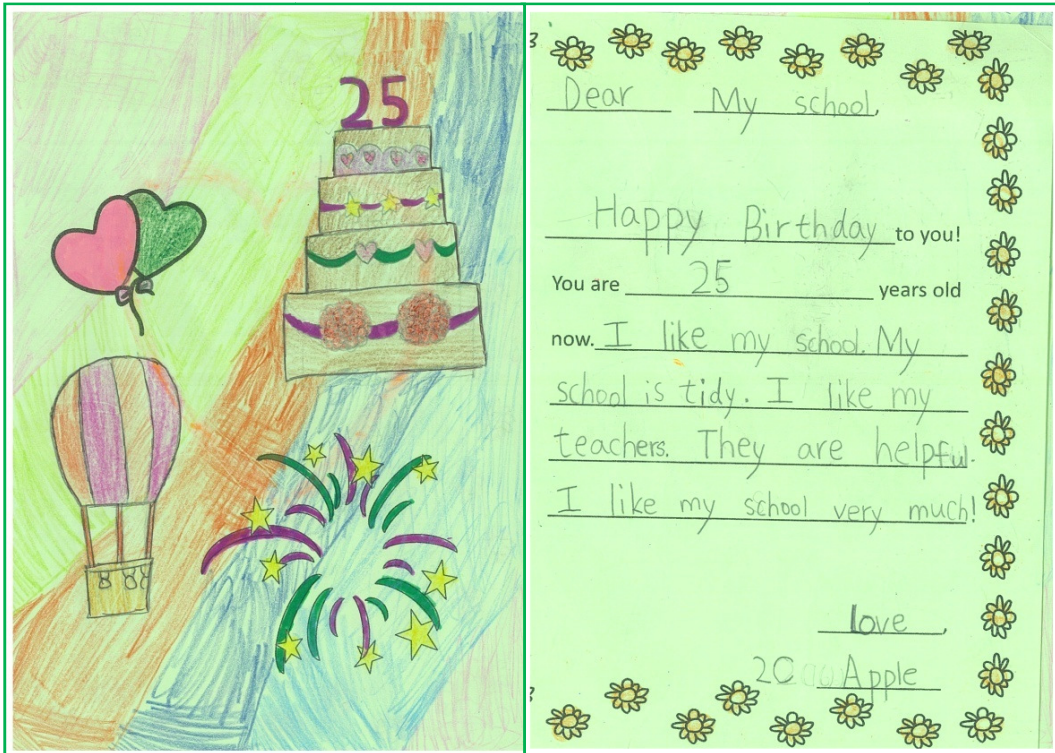 25
Dear My school,
Happy Birthday to you!
You are 25 years old
now. I like my school. My
school is tidy. I like my
teachers. They are helpful.
I like my school very much!
love,
2C Apple